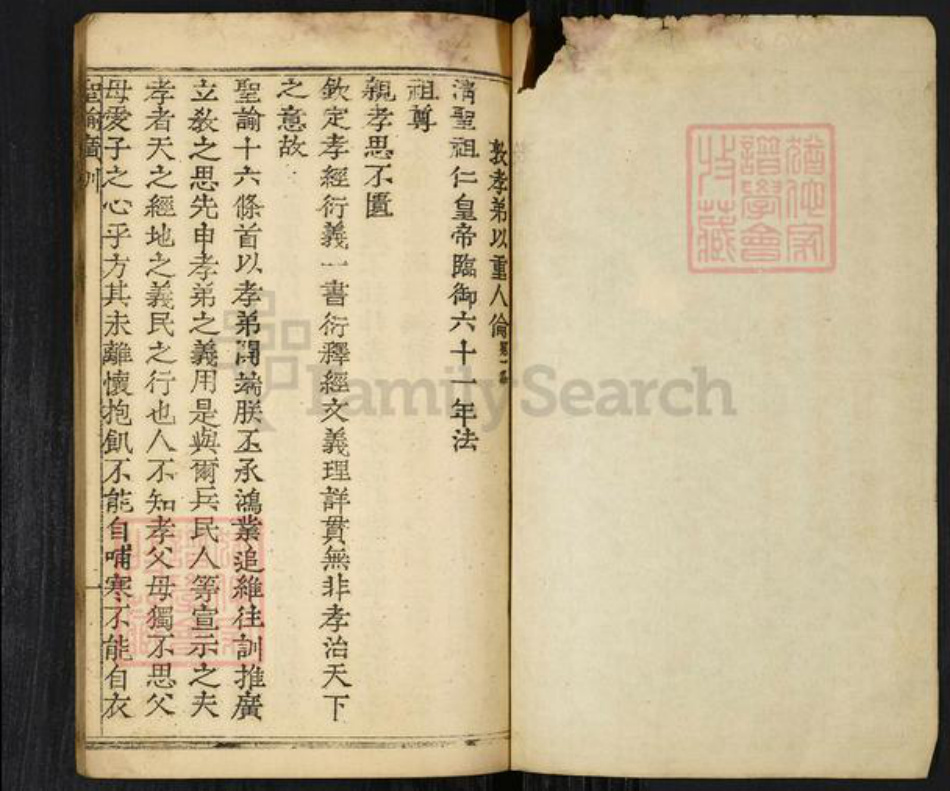 敦孝弟以重人倫第一條
清聖祖仁皇帝臨御六十一年法
祖尊
親孝思不匱
欽定孝經衍義一書衍釋經文義理詳貫無非孝治天下
之意故
聖諭十六條首以孝弟開端朕丕承鴻業追維往訓推廣
立教之思先申孝弟之義用是與爾兵民人等宣示之夫
孝者天之經地之義民之行也人不知孝父母獨不思父
母愛子之心乎方其未離懷抱飢不能自哺寒不能自衣
聖諭廣訓
一
FamilySearch